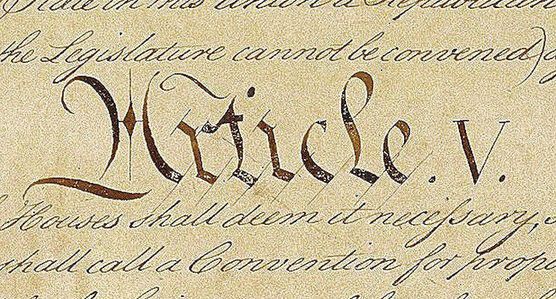 in this Union a Republican
the Legislature cannot be convened)
Article. V.
Houses shall deem it neceſsary,
shall call a Convention for propo